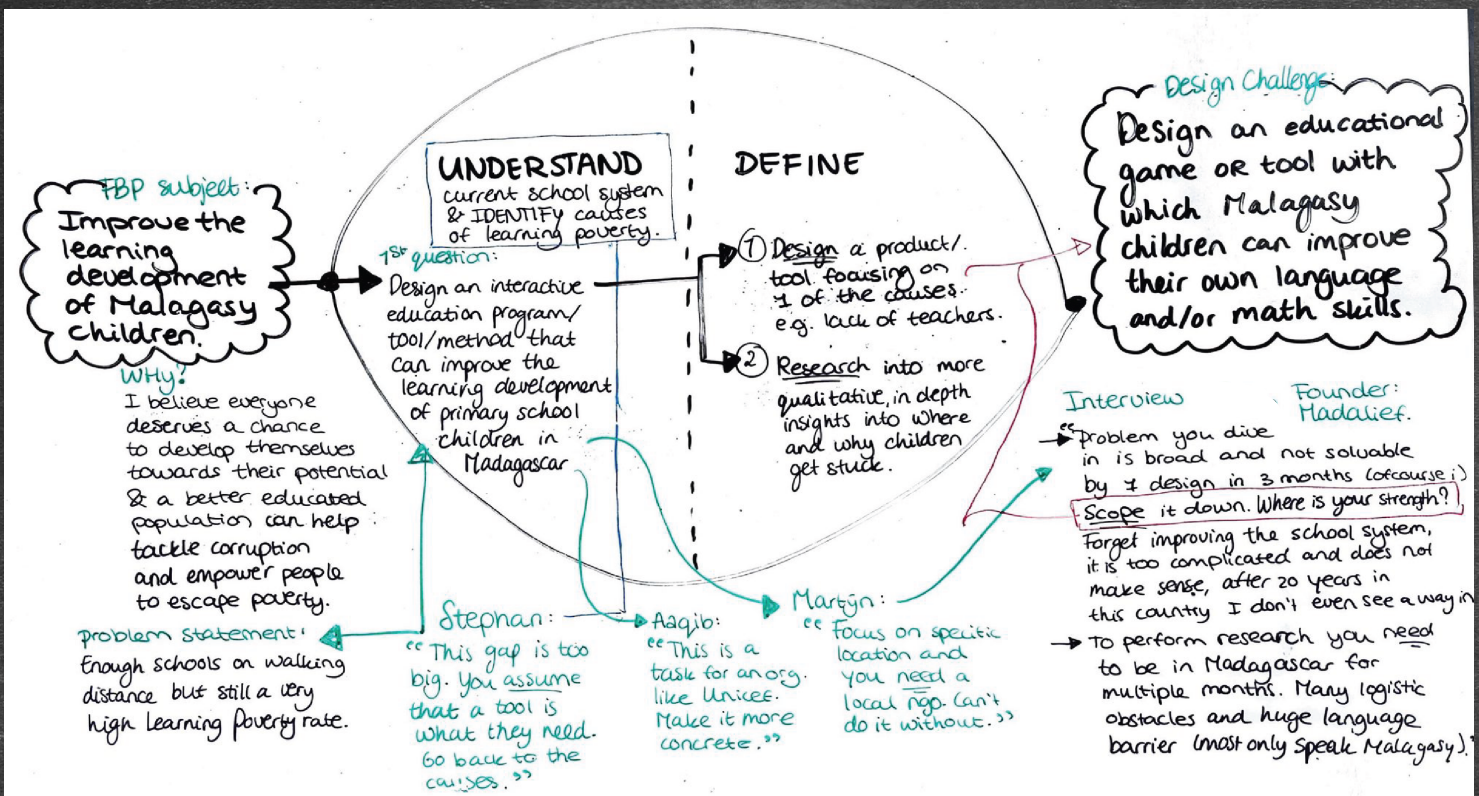 FBP subject:
Improve the
learning
development
of Malagasy
children.
WHY?
I believe everyone
deserves a chance
to develop themselves
towards their potential
& a better educated
population can help
tackle corruption
and empower people
to escape poverty.
Problem statement:
Enough schools on walking
distance but still a very
high Learning Poverty rate.
UNDERSTAND
current school system
& IDENTIFY causes
of learning poverty.
1st question:
Design an interactive
education program/
tool/method that
can improve the
learning development
of primary school
children in
Madagascar
DEFINE
1 Design a product/
tool focusing on
1 of the causes.
e.g. lack of teachers.
2 Research into more
qualitative, in depth
insights into where
and why children
get stuck.
Stephan:
"This gap is too
big. You assume
that a tool is
what they need.
Go back to the
causes."
Aaqib:
"This is a
task for an org.
like Unicef.
Make it more
concrete."
Martijn:
"Focus on specific
location and
you need a
local ngo. Can't
do it without."
Design Challenge:
Design an educational
game OR tool with
which Malagasy
children can improve
their own language
and/or math skills.
Interview Founder:
Madalief.
"Problem you dive
in is broad and not solvable
by 1 design in 3 months (ofcourse;)
Scope it down. Where is your strength?
Forget improving the school system,
it is too complicated and does not
make sense, after 20 years in
this country I don't even see a way in
To perform research you need
to be in Madagascar for
multiple months. Many logistic
obstacles and huge language
barrier (most only speak Malagasy)."